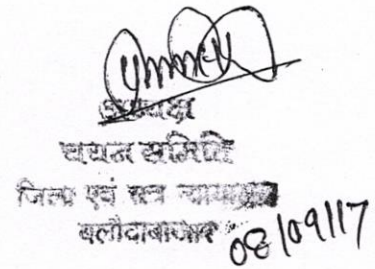 अध्यक्ष
चयन समिति
जिला एवं सत्र न्यायालय
बलौदाबाजार
08/09/17